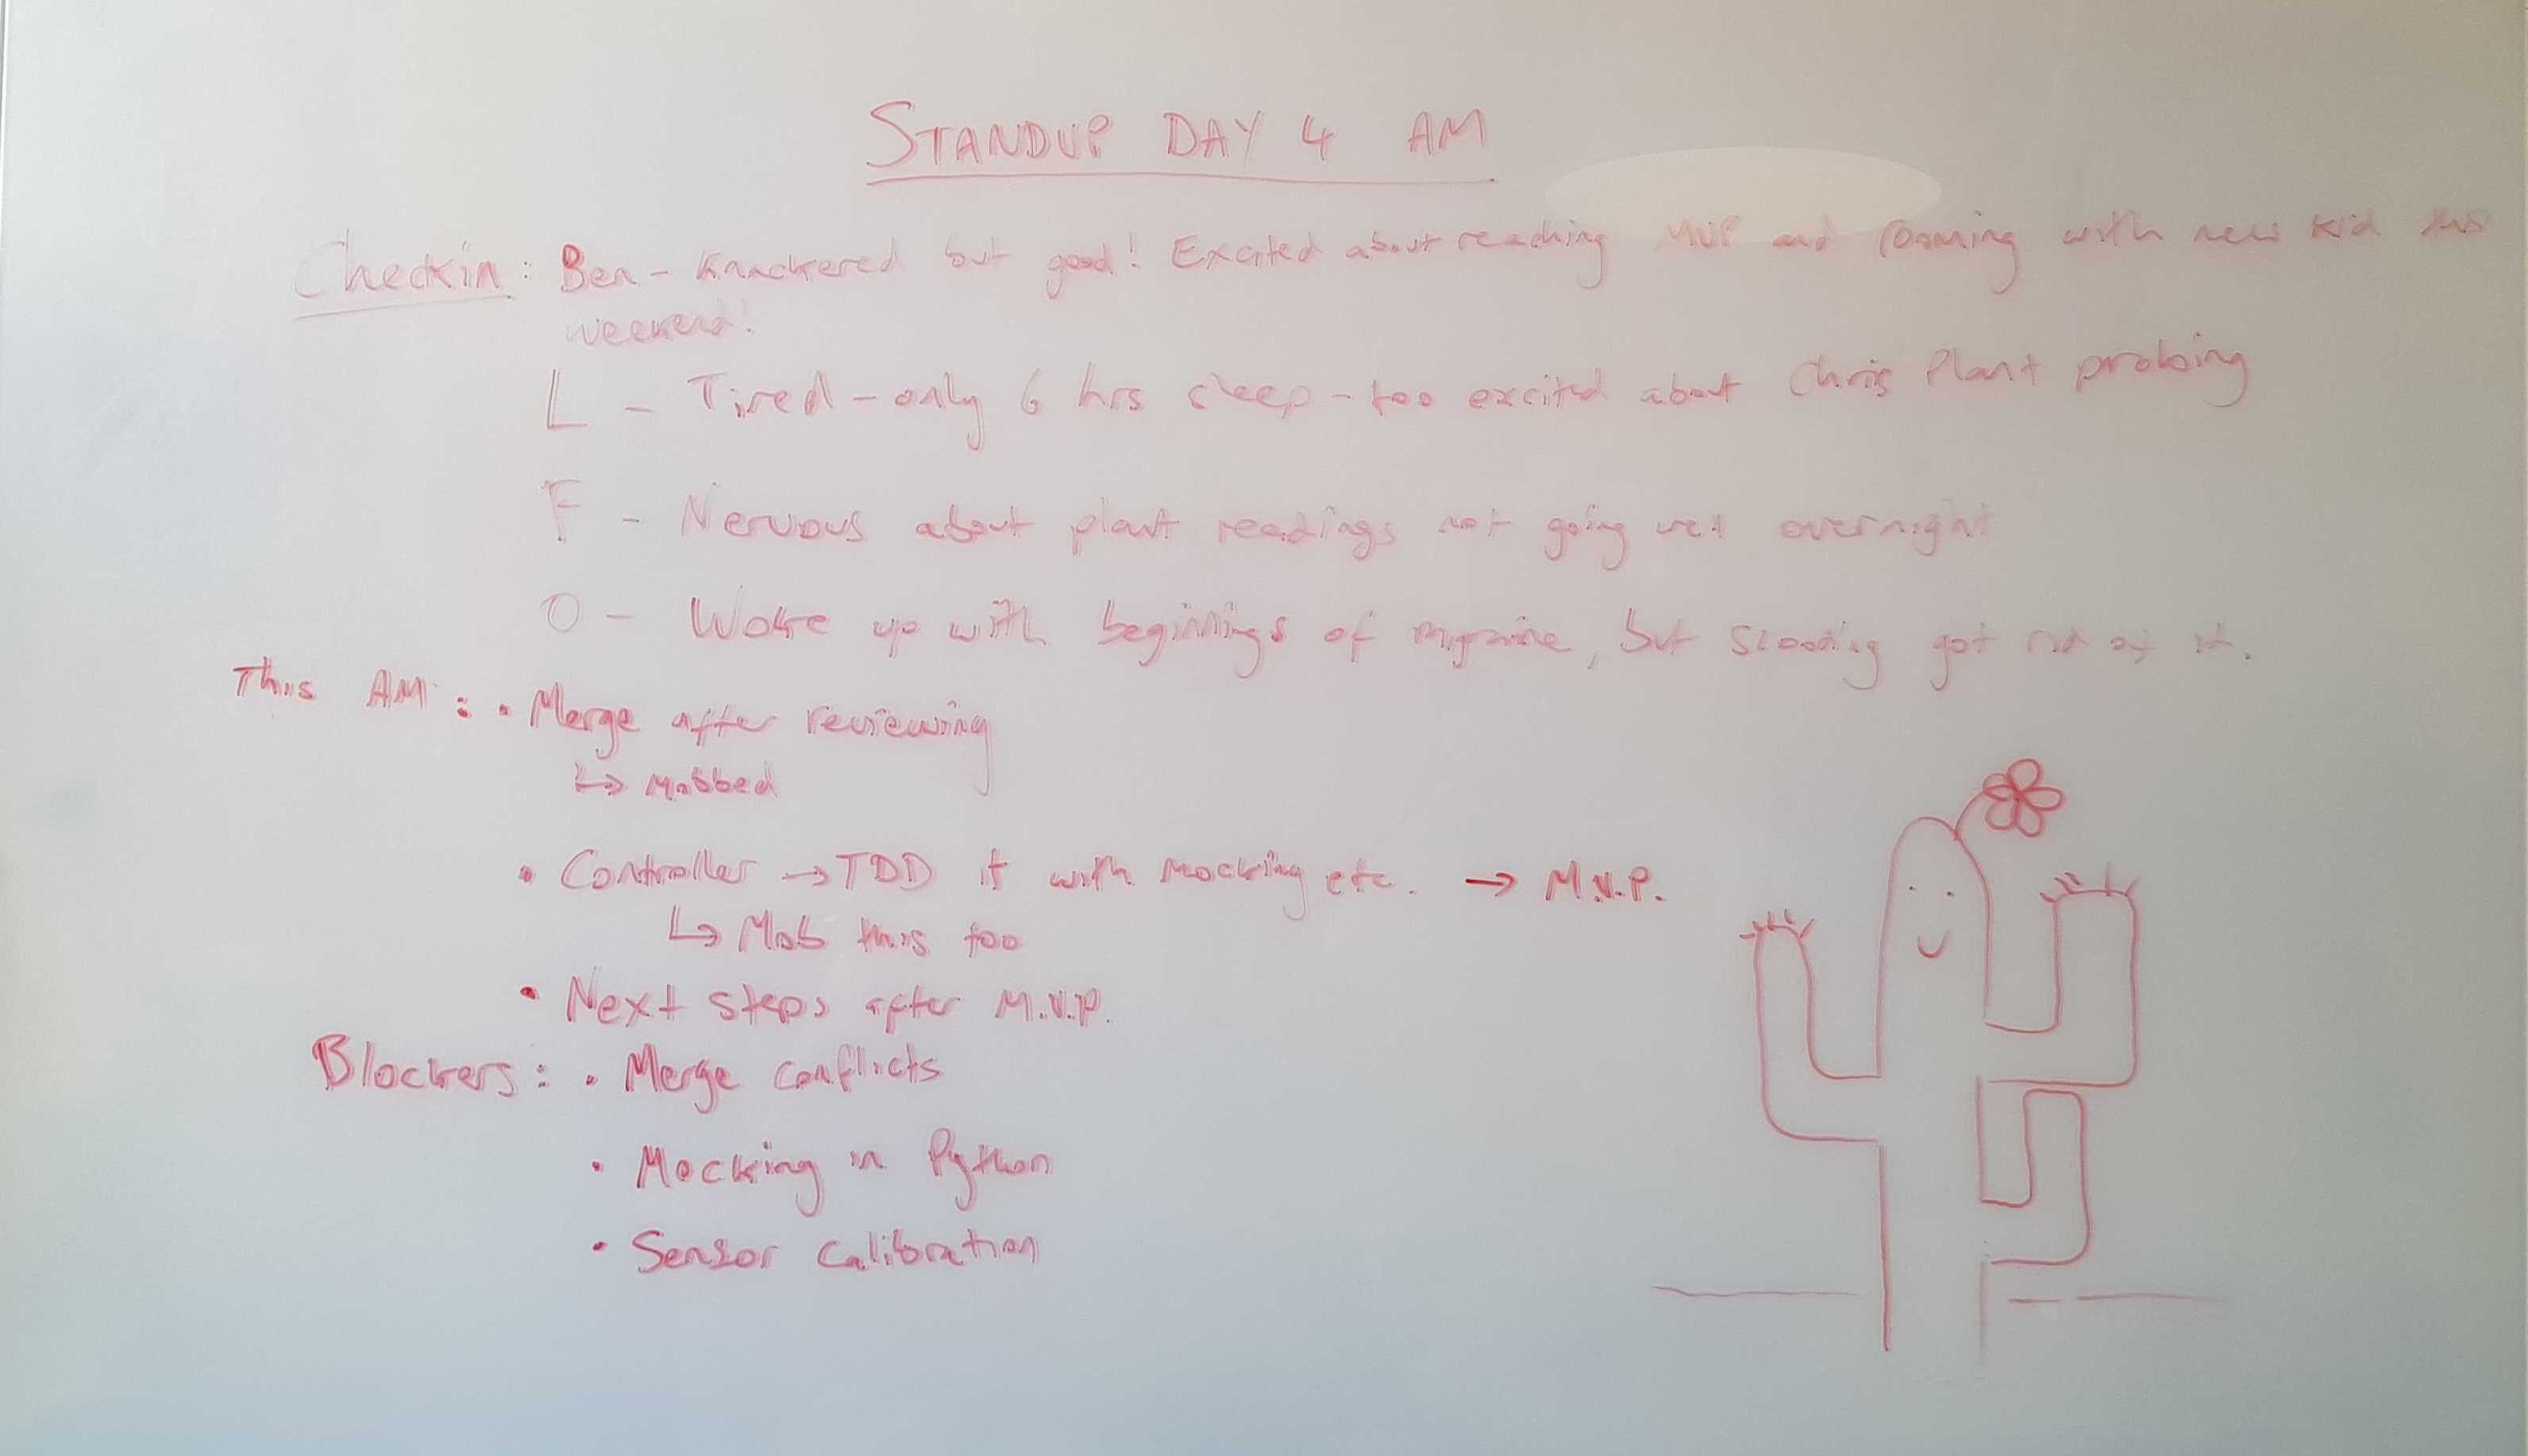 STANDUP DAY 4 AM
Checkin: Ben - Knackered but good! Excited about reaching MVP and roaming with new kid this
weekend!
L - Tired - only 6 hrs sleep - too excited about Chris Plant probing
F - Nervous about plant readings not going well overnight
O - Woke up with beginnings of migraine, but got rid of it.
This AM: • Merge after reviewing
↳ Mobbed
• Controller → TDD it with mocking etc. → M.V.P.
↳ Mob this too
• Next steps after M.V.P.
Blockers: • Merge conflicts
• Mocking in Python
• Sensor calibration